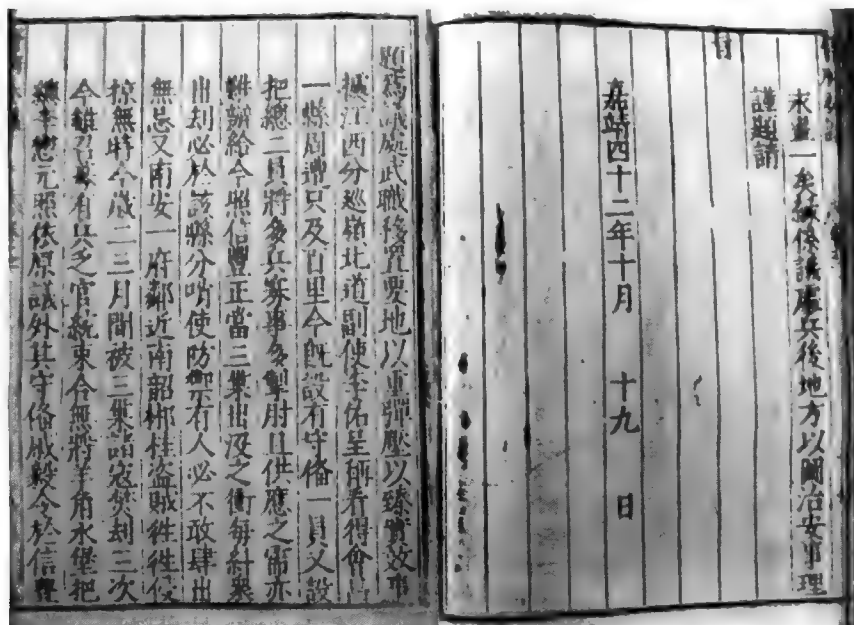 未盡一矣緣係議處兵後地方以圖治安事理
謹題請
旨
嘉靖四十二年十月 十九 日
題爲議處武職移置要地以重彈壓以臻實效事
據江西分巡嶺北道副使李佑呈稱看得會昌
一縣周遭只及百里今既設有守俻一員又設
把總二員將多兵寡事多掣肘且供應之需亦
難辦給今照信豐正當三巢出没之衝每糾衆
出刼必於該縣分哨使防禦有人必不敢肆出
無忌又南安一府鄰近南韶郴桂盗賊徃徃侵
掠無時今歲二三月間被三巢諸宼焚刼三次
今雖召募有兵乏官統束合無將羊角水堡把
總李懋元照依原議外其守俻戚毅令於信豐